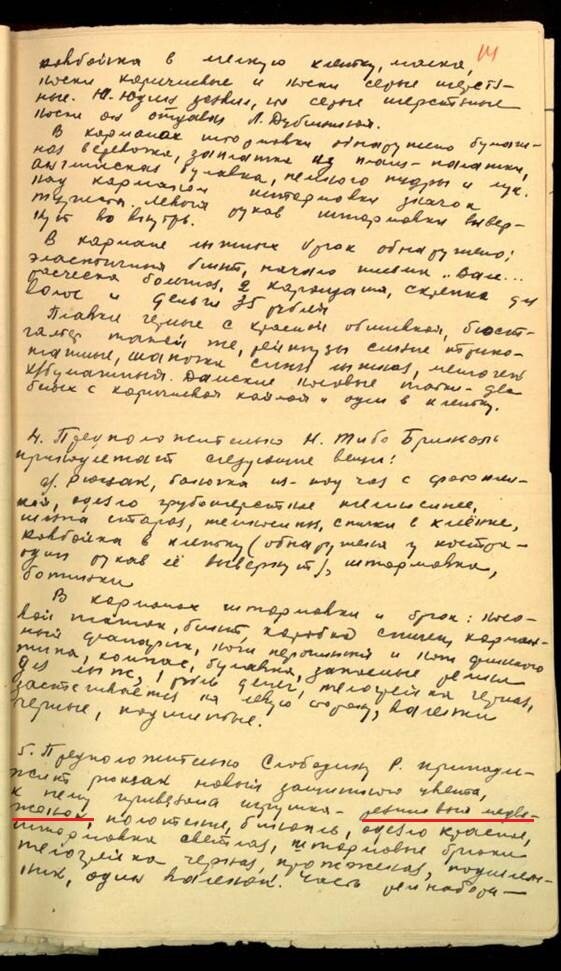 14
ковбойка в мелкую клетку, маска,
носки коричневые и носки серые шерстя-
ные. Ю. Юдин заявил, что серые шерстяные
носки он отдавал Л. Дубининой.
В карманах штормовки обнаружено бумаж-
ная веревочка, заплатка из плащ-палатки,
английская булавка, немного пудры и лук.
Над карманом штормовки значок
туриста. Левый рукав штормовки вывер-
нут во внутрь.
В кармане лыжных брюк обнаружено:
эластичный бинт, начало письма „Вале...
расческа большая, 2 карандаша, скрепка для
волос и деньги 35 рублей
Плавки черные с красной обшивкой, бюст-
гальтер такой же, рейтузы синие трико-
тажные, шапочка синяя лыжная, мешочек
х/бумажный. Дамские носовые платки - два
белых с коричневой каймой и один в клетку.
4. Предположительно Н. Тибо Бриньоль
принадлежат следующие вещи:
рюкзак, баночка из-под час с фотоплен-
кой, одеяло грубошерстное
старая, спички в клеёнке,
ковбойка в клетку (обнаружена у костра -
один рукав её вывернут), штормовка,
ботинки
В карманах штормовки и брюк: носо-
вой платок, бинт, коробка спичек, карман-
ный фонарик, нож перочинный и нож финского
типа, компас, булавка, запасные ремни
для лыж, 1 рубль денег, телогрейка черная,
застегивается на левую сторону, валенки
черные, подшитые.
5. Предположительно Слободину Р. принадле-
жит рюкзак новый защитного цвета,
к нему привязана игрушка - резиновый медве-
жонок, полотенце, бинокль, одеяло красное,
штормовка светлая, штормовые брюки
телогрейка черная, прожженая, подшлем-
ник, один валенок. Часть